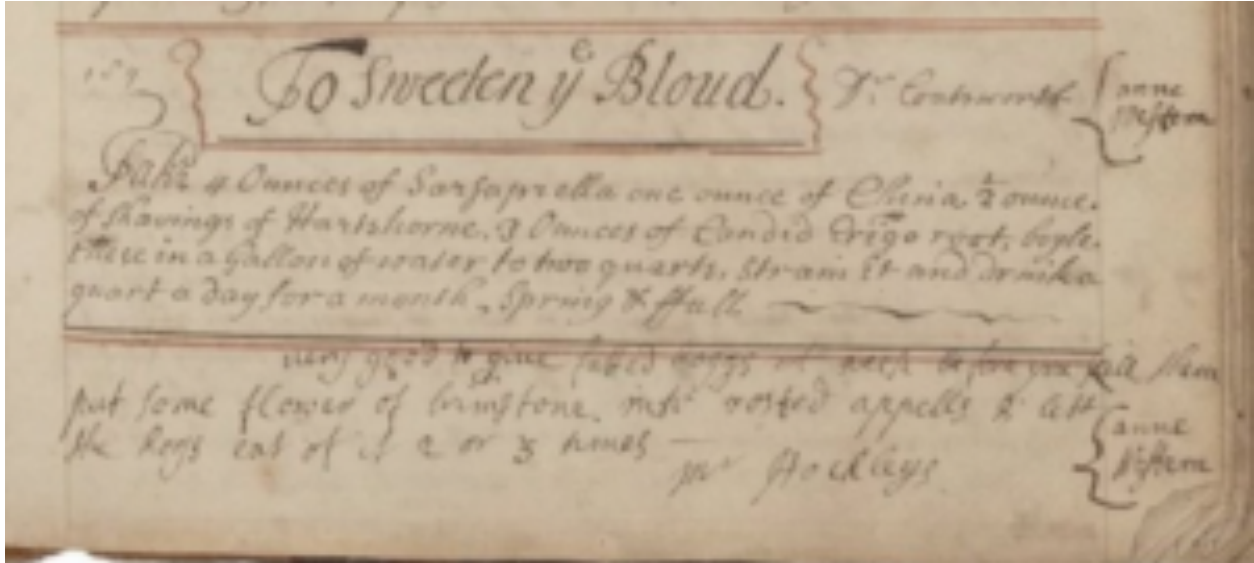 To Sweeten yͤ Bloud. Dr. Coatsworth anne Western
Take 4 Ounces of Sarsaprella one ounce of China ½ ounce.
of shavings of Hartshorne. 3 Ounces of Candid Eringo root, boyle.
these in a Gallon of water to two quarts. Strain it and drink a
quart a day for a month. Spring & ffall
very good to give fatted hoggs a week before you kill them
put some flower of brimstone into rosted appells & lett
the hogs eat of it 2 or 3 times anne Western
Mr Stockleys